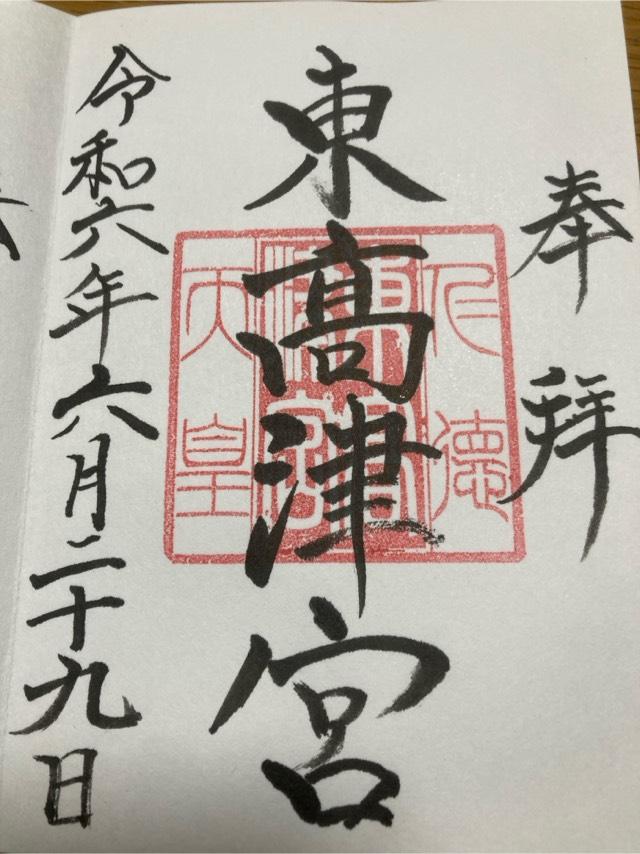 奉拝
東高津宮
仁徳
天皇
令和六年六月二十九日